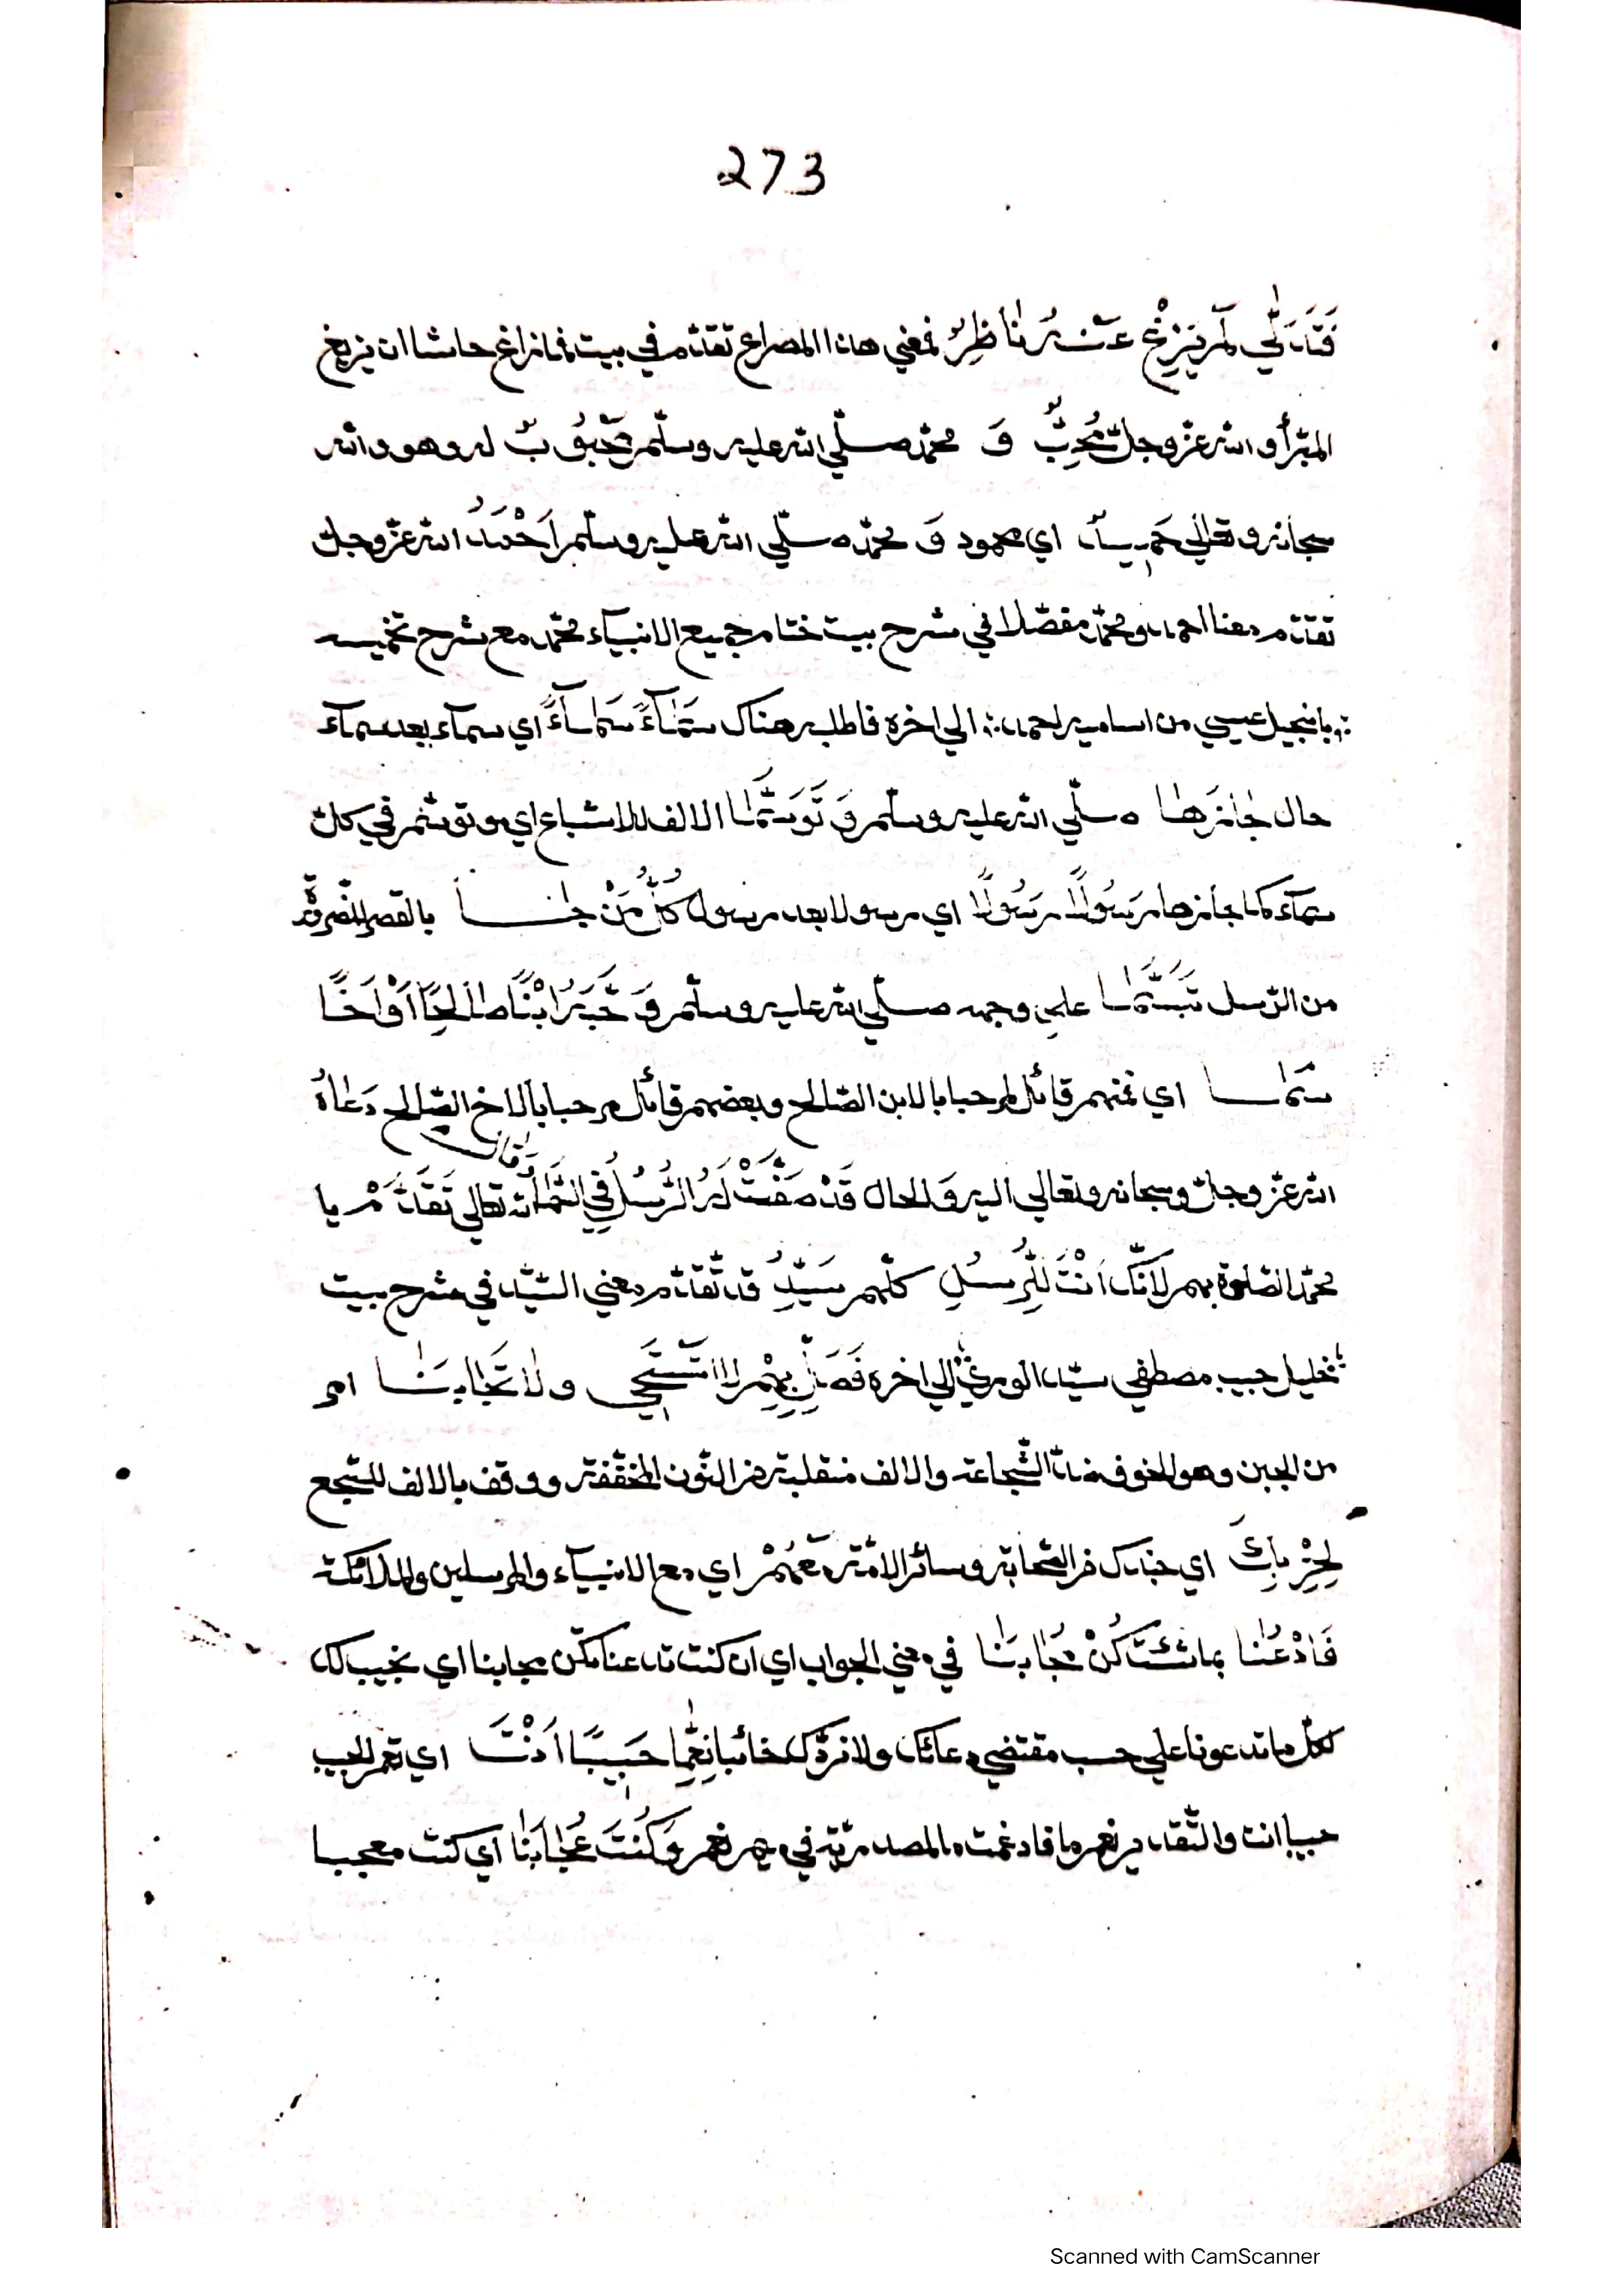 273
فَتَدَلّٰي لَمْ يَزِغْ عَنْهُ نَاظِرُ فمعني هاذا المصراع تقدّم في بيت فما زاغ حاشا ان يزيغ
المبرّأ و الله عزّ وجلّ مُحِبٌّ وَ محمّد صلّي الله عليه وسلّم مَحْبُوْبٌ له وهو والله
سبحانه وتعالٰي حَمِيْدٌ اي محمود وَ محمّد صلّي الله عليه وسلّم اَحْمَدُ الله عزّ وجلّ
تقدّم معنا احمد ومحمّد مفصّلا في شرح بيت ختام جميع الانبيآء محمّد مع شرح تخميسه
بانجيل عيسي من اساميه احمد الي اخره فاطلبه هناك سَمَآءً سَمَآءً اي سمآء بعد سمآء
حال جَازَهَا صلّي الله عليه وسلّم وَ تَوَسَّمَا الالف للاشباع اي هو توسّم في كلّ
سمآء كما جازها رَسُوْلًا رَسُوْلًا اي رسولا بعد رسول كُلُّ مَنْ جَا بالقصر للضّرورة
من الرّسل تَبَسَّمَا علي وجهه صلّي الله عليه وسلّم وَ خَبَرُ ابْنًا صَالِحًا اَوْ اَخًا
سَمَا اي فمنهم قائل مرحبا بالابن الصّالح وبعضهم قائل مرحبا بالاخ الصّالح دَعَاهُ
الله عزّ وجلّ وسبحانه وتعالي اليه وَ الحال قَدْ صَفَّتْ لَهُ الرُّسُلُ فِي السَّمَا وَقَالَ الله تعالي تَقَدَّمْ يا
محمّد الصّلوة بهم لانّك اَنْتَ لِلرُّسُلِ كلّهم سَيِّدُ قد تقدّم معني السّيّد في شرح بيت
خليل حبيب مصطفي سيّد الوري الي اخره فَصَلِّ بِهِمْ لا تَسْتَحِي وَلَا تَجَابَنَا امر
من الجبن وهو الخوف ضدّ الشّجاعة والالف منقلبة من النّون المخفّفة ووقف بالالف للسّجع
لِحِزْبِكَ اي جنابك من الصّحابة وسائر الامّة مَعْهُمْ اي مع الانبيآء والمرسلين والملائكة
فَادْعُنَا بماشئتَ كُنْ مُجَابَنَا في معني الجواب اي ان كنت تدعنا تكن مجابنا اي نجيب لك
لكلّ ما تدعونا علي حسب مقتضي دعائك ولا نردّك خائبا نِعِمَّا حَبِيْبًا اَنْتَ اي نعم الحبيب
حبيبا انت والتّقدير نعم ما فادغمت ما المصدريّة في ميم نعم وَكُنْتَ عُجَابَنَا اي كنت معجبا
Scanned with CamScanner